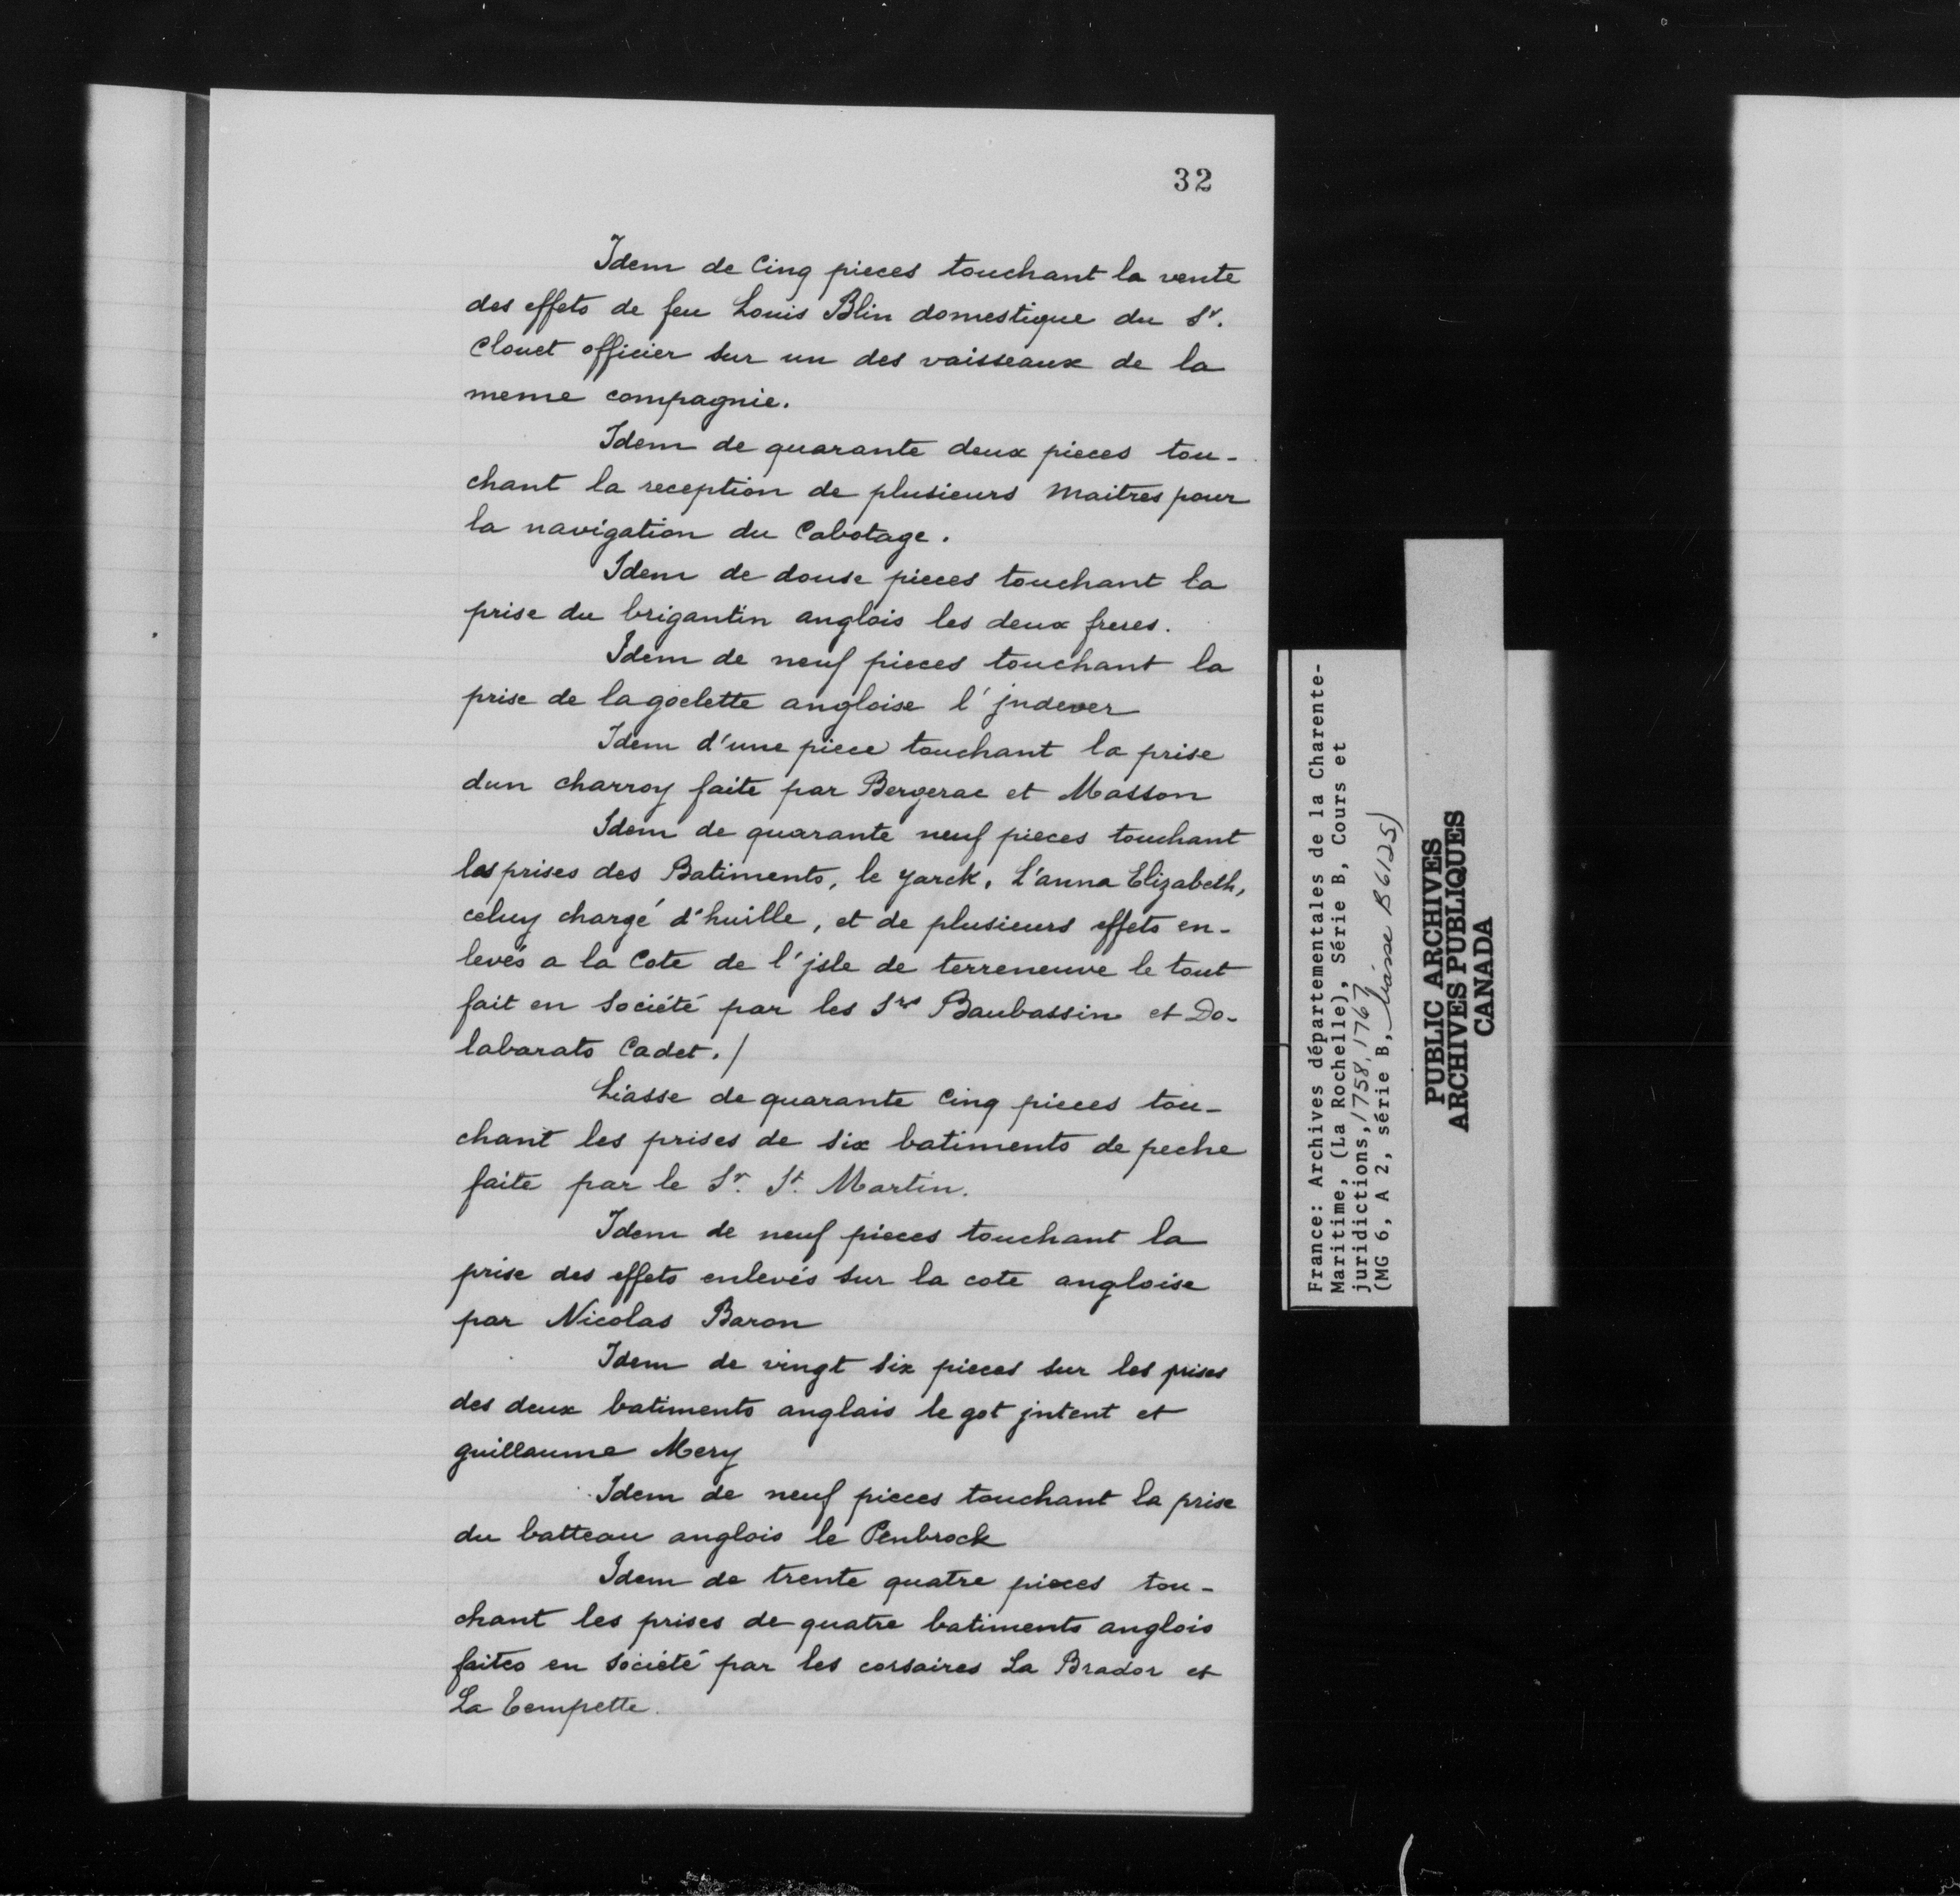 32
Idem de Cinq pieces touchant la vente
des effets de feu Louis Blin domestique du Sr.
Clouet officier sur un des vaisseaux de la
meme compagnie.
Idem de quarante deux pieces tou-
chant la reception de plusieurs maitres pour
la navigation du Cabotage.
Idem de douse pieces touchant la
prise du brigantin anglois les deux freres.
Idem de neuf pieces touchant la
prise de la goelette angloise l'jndever
Idem d'une piece touchant la prise
dun charroy faite par Bergerac et Masson
Idem de quarante neuf pieces touchant
les prises des Batiments, le yarck, L'anna Elizabeth,
celuy chargé d'huille, et de plusieurs effets en-
levés a la Cote de l'jsle de terreneuve le tout
fait en Société par les Srs Baubassin et Do-
labarats Cadet./
Liasse de quarante Cinq pieces tou-
chant les prises de six batiments de peche
faite par le Sr. St. Martin.
Idem de neuf pieces touchant la
prise des effets enlevés sur la cote angloise
par Nicolas Baron
Idem de vingt six pieces sur les prises
des deux batiments anglais le got jntent et
guillaume Mery
Idem de neuf pieces touchant la prise
du batteau anglois le Penbrock
Idem de trente quatre pieces tou-
chant les prises de quatre batiments anglois
faites en Société par les corsaires La Brador et
La Tempette.
France: Archives départementales de la Charente-
Maritime, (La Rochelle), Série B, Cours et
juridictions, 1758, 1767
(MG 6, A 2, série B, liasse B6125)
PUBLIC ARCHIVES
ARCHIVES PUBLIQUES
CANADA